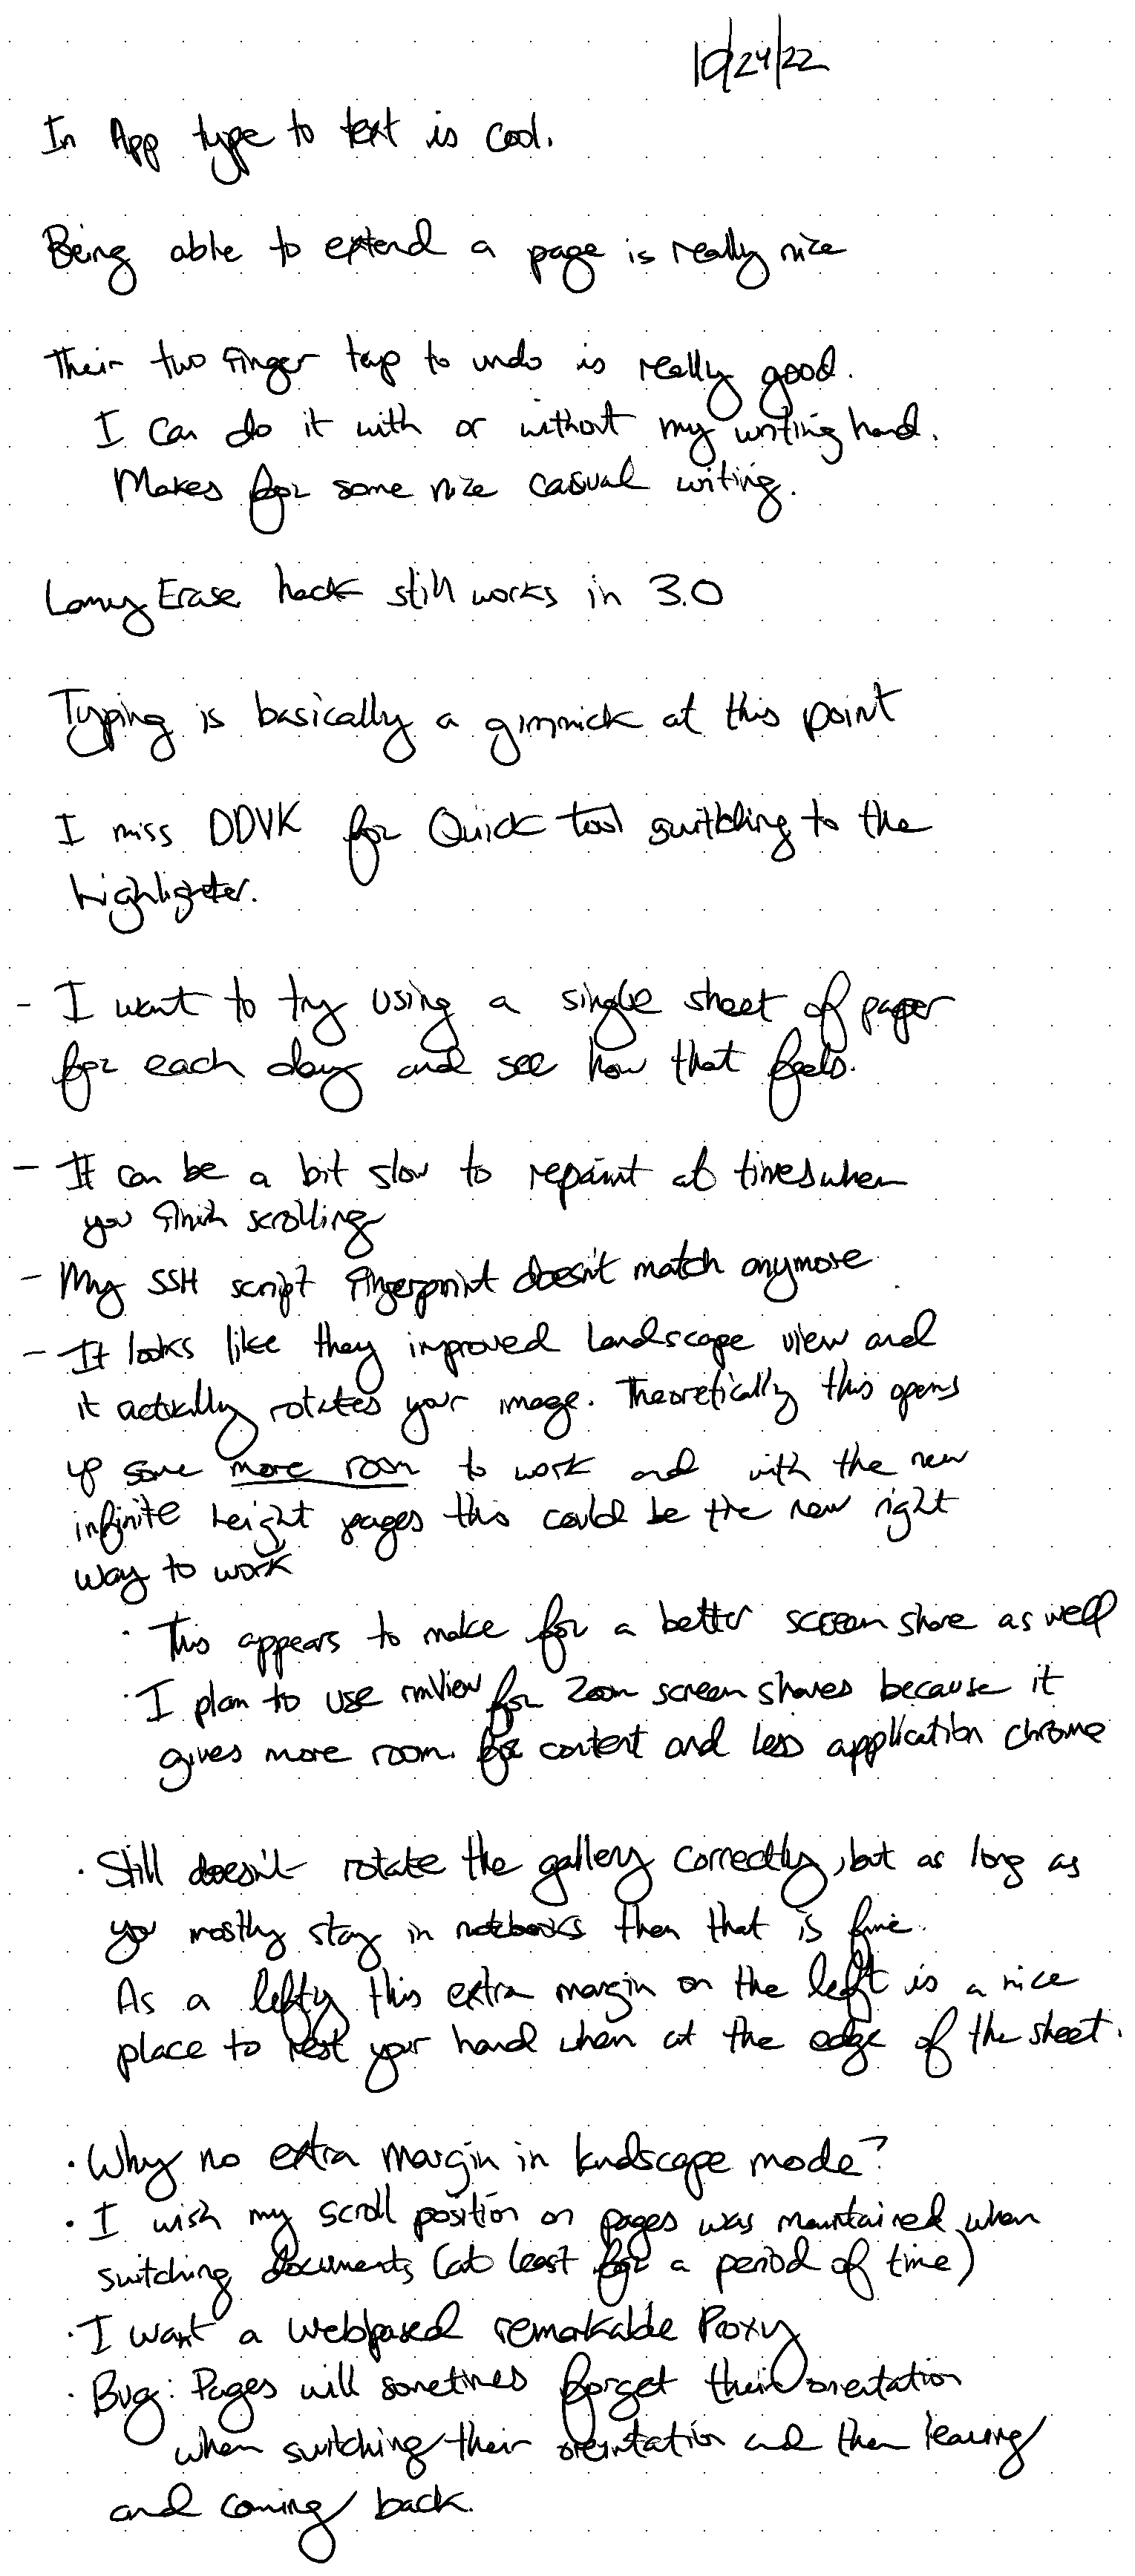 10/24/22
In App type to text is cool.
Being able to extend a page is really nice
Their two finger tap to undo is really good.
I can do it with or without my writing hand.
Makes for some nice casual writing.
Lamy Erase hack still works in 3.0
Typing is basically a gimmick at this point
I miss DDVK for Quick tool switching to the
highlighter.
- I want to try using a single sheet of paper
for each day and see how that feels.
- It can be a bit slow to repaint at times when
you finish scrolling
- My SSH script fingerprint doesn't match anymore
- It looks like they improved landscape view and
it actually rotates your image. Theoretically this opens
up some more room to work and with the new
infinite height pages this could be the new right
way to work
· This appears to make for a better screen share as well
· I plan to use rmview for Zoom screen shares because it
gives more room for content and less application chrome
· Still doesn't rotate the gallery correctly, but as long as
you mostly stay in notebooks then that is fine.
As a lefty this extra margin on the left is a nice
place to rest your hand when at the edge of the sheet.
· Why no extra margin in landscape mode?
· I wish my scroll position on pages was maintained when
switching documents (at least for a period of time)
· I want a webbased remarkable Proxy
· Bug: Pages will sometimes forget their orientation
when switching their orientation and then leaving
and coming back.